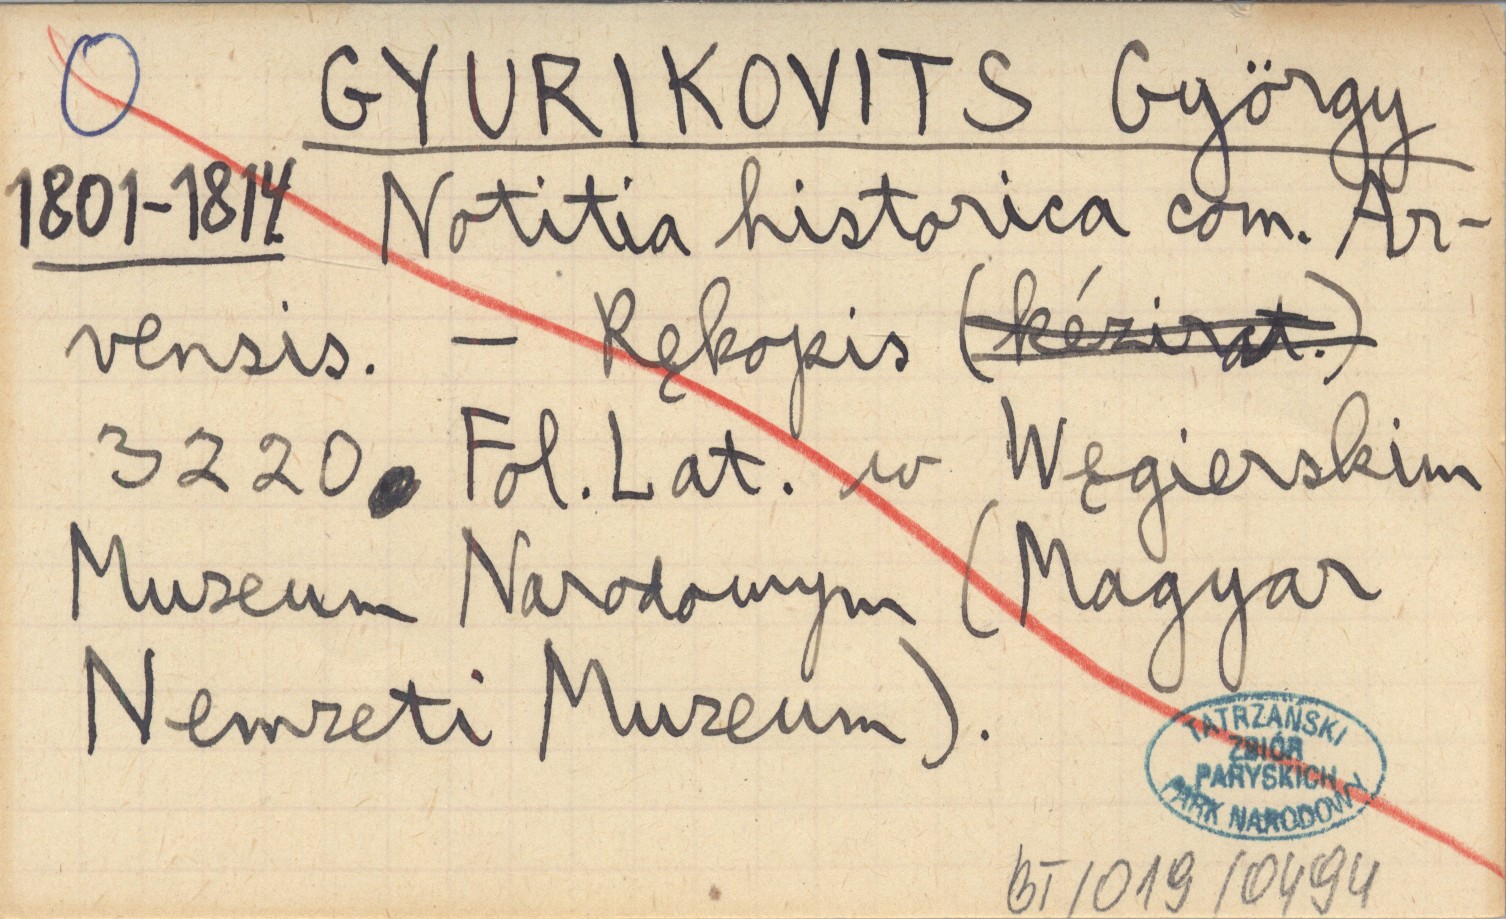 GYURIKOVITS György
1801-1814. Notitia historica com. Ar-
vensis. — Rękopis (kézirat.)
3220. Fol. Lat. w Węgierskim
Muzeum Narodowym (Magyar
Nemzeti Muzeum).
TATRZAŃSKI
ZBIÓR
PARYSKICH
PARK NARODOWY
BT/019/0494